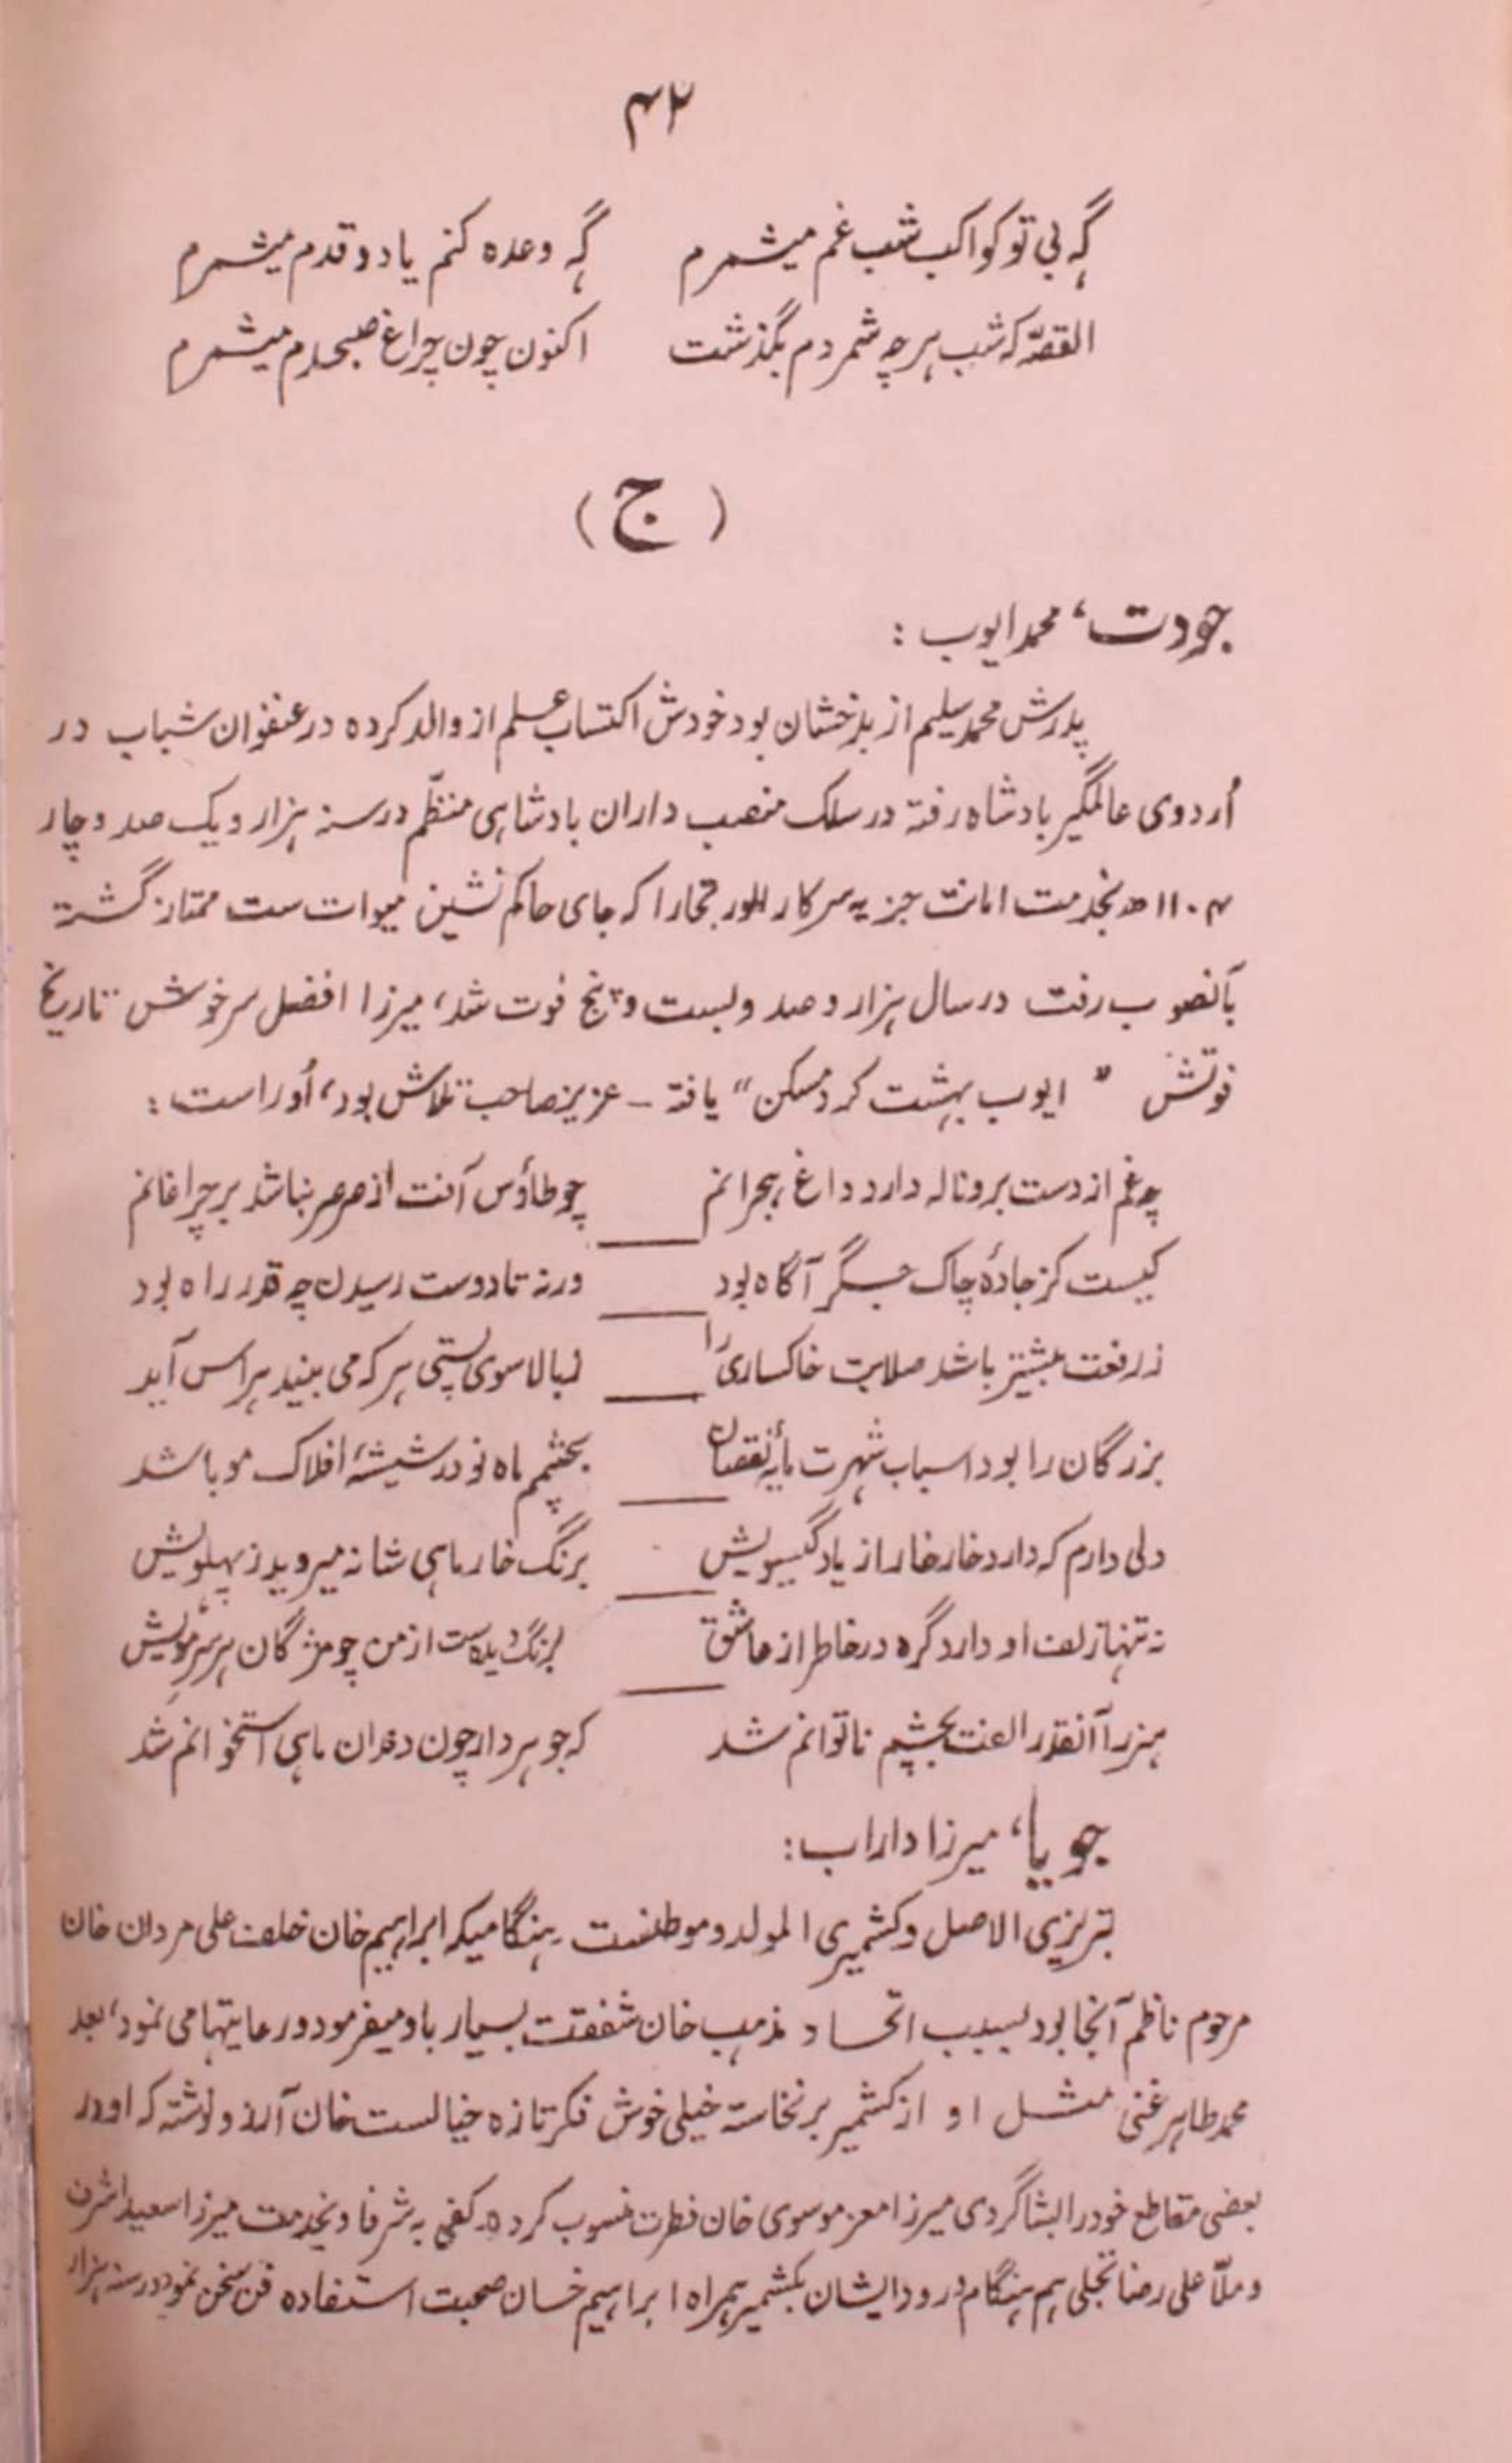 ۴۲
گہ بی تو کواکب شب غم میشمرم گہ وعدہ کنم یاد و قدم میشمرم
القصّہ کہ شب ہرچہ شمردم بگذشت اکنون چون چراغ صبحدم میشمرم
(ج)
جودت، محمد ایوب :
پدرش محمد سلیم از بدخشان بود خودش اکتساب علم از والد کردہ در عنفوان شباب در
اُردوی عالمگیر بادشاہ رفتہ در سلک منصب داران بادشاہی منتظّم در سنہ ہزار و یک صد و چار
۱۱۰۴ ھ بخدمت امانت جزیہ سرکار الور تجارا کہ جای حاکم نشین میوات ست ممتاز گشتہ
بآنصوب رفت در سال ہزار و صد و بست و پنج فوت شد، میرزا افضل سرخوش تاریخ
فوتش " ایوب بہشت کرد مسکن" یافتہ - عزیز صاحب تلاش بود، اُوراست :
چہ غم از دست برو نالہ دارد داغ ہجرانم چو طاؤس آفت از صرصر نباشد بر چراغانم
کیست کز جادۂ چاک جگر آگاہ بود ورنہ تا دوست رسیدن چہ قدر راہ بود
ز رفعت بیشتر باشد صلابت خاکساری را ز بالا سوی پستی ہر کہ می بیند ہراس آید
بزرگان را بود اسباب شہرت مایۂ نقصان بچشم ماہ نو در شیشۂ افلاک مو باشد
دلی دارم کہ دارد خار خار از یاد گیسویش برنگ خار ماہی شانہ میروید ز پہلویش
نہ تنہا زلف او دارد گرہ در خاطر از عاشق برنگ دیگرست از من چو مژگان ہر سر مویش
ہنر را آنقدر الفت بچشم ناتوانم شد کہ جوہر دار چون دندان ماہی استخوانم شد
جویا، میرزا داراب :
تبریزی الاصل و کشمیری المولد و موطنست ۔ ہنگامیکہ ابراہیم خان خلف علی مردان خان
مرحوم ناظم آنجا بود بسبب اتحاد مذہب خان شفقت بسیار باو میفرمود و رعایتہا می نمود، بعد
محمد طاہر غنی مثل او از کشمیر برنخاستہ خیلی خوش فکر تازہ خیالست خان آرزو نوشتہ کہ او در
بعضی مقاطع خود را بشاگردی میرزا معز موسوی خان فطرت منسوب کردہ۔ کفی بہ شرفا و بخدمت میرزا سعید اشرف
و ملّا علی رضا تجلی ہم ہنگام ورود ایشان بکشمیر ہمراہ ابراہیم خان صحبت استفادہ فن سخن نمود در سنہ ہزار